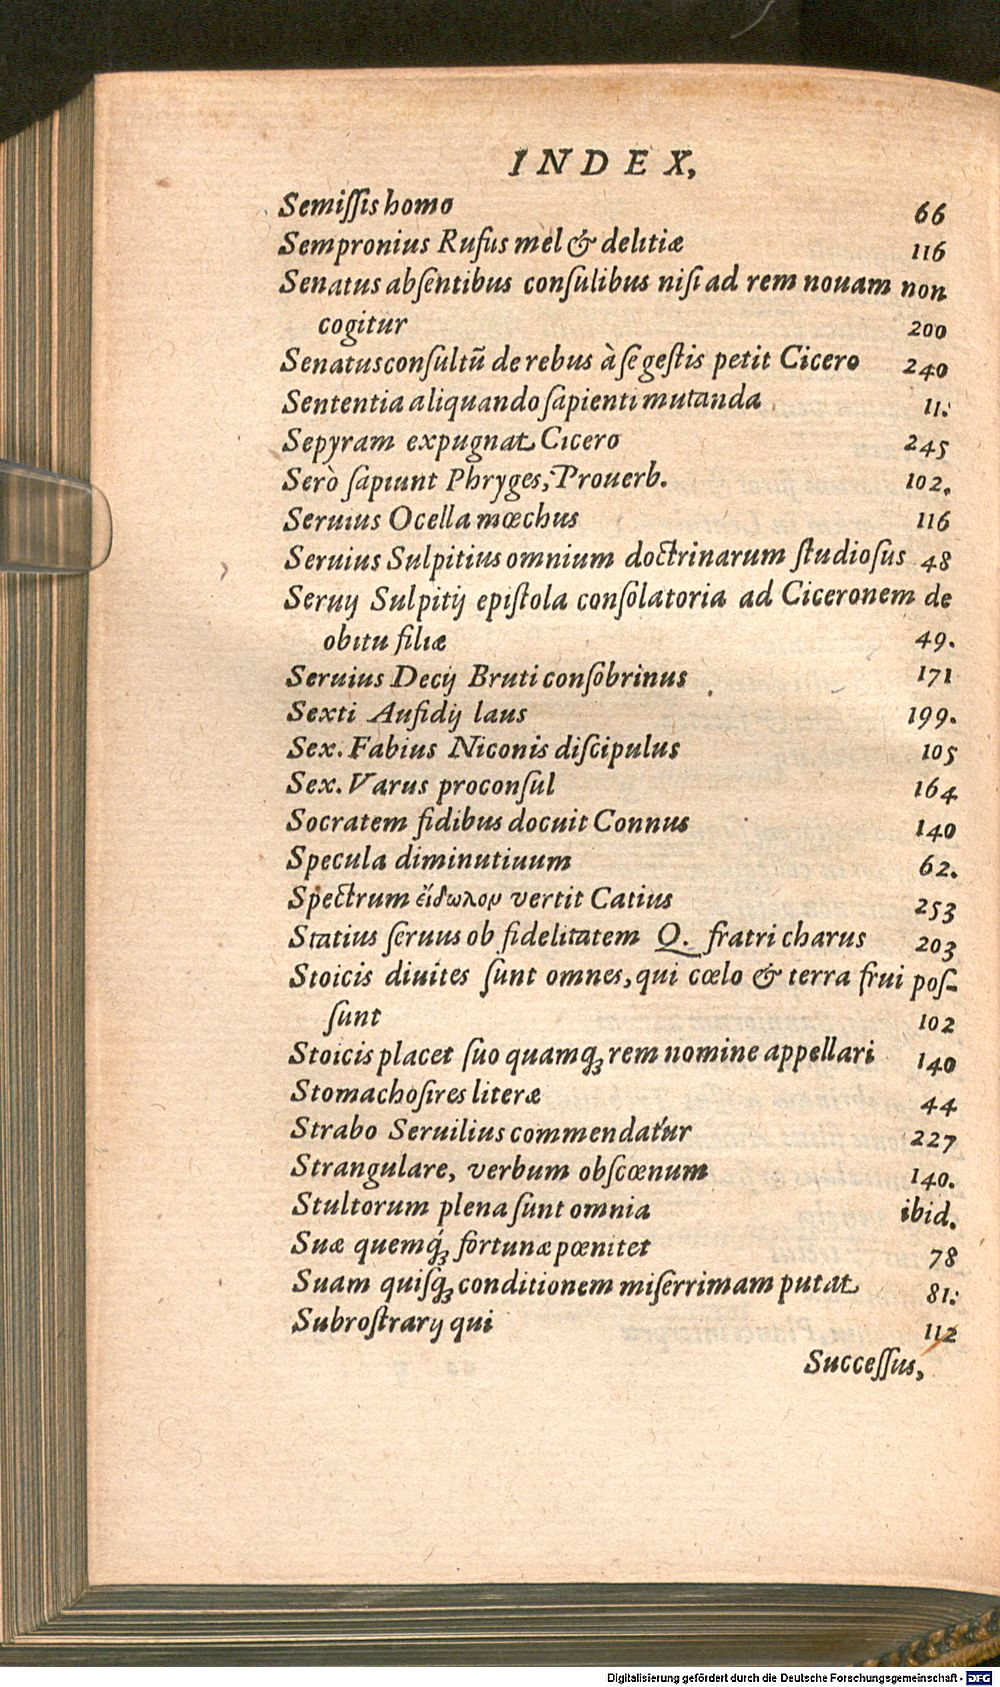 INDEX,
Semiſſis homo 66
Sempronius Rufus mel & delitiæ 116
Senatus abſentibus conſulibus niſi ad rem nouam non
cogitur 200
Senatusconſultũ de rebus à ſe geſtis petit Cicero 240
Sententia aliquando ſapienti mutanda 11.
Sepyram expugnat Cicero 245
Serò ſapiunt Phryges, Prouerb. 102.
Seruius Ocella mœchus 116
Seruius Sulpitius omnium doctrinarum ſtudioſus 48
Seruij Sulpitij epiſtola conſolatoria ad Ciceronem de
obitu filiæ 49.
Seruius Decij Bruti conſobrinus 171
Sexti Aufidij laus 199.
Sex. Fabius Niconis diſcipulus 105
Sex. Varus proconſul 164
Socratem fidibus docuit Connus 140
Specula diminutiuum 62.
Spectrum εἴδωλον vertit Catius 253
Statius ſeruus ob fidelitatem Q. fratri charus 203
Stoicis diuites ſunt omnes, qui cœlo & terra frui poſ-
ſunt 102
Stoicis placet ſuo quamq; rem nomine appellari 140
Stomachoſires literæ 44
Strabo Seruilius commendatur 227
Strangulare, verbum obſcœnum 140.
Stultorum plena ſunt omnia ibid.
Suæ quemq́; fortunæ pœnitet 78
Suam quiſq; conditionem miſerrimam putat 81:
Subroſtrarij qui 112
Succeſſus,
Digitalisierung gefördert durch die Deutsche Forschungsgemeinschaft - DFG